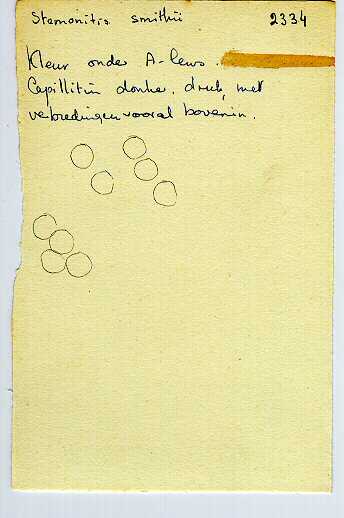 Stemonitis smithii 2334
Kleur onder A-lens.
Capillitium donker, druk, met
verbredingen vooral bovenin.